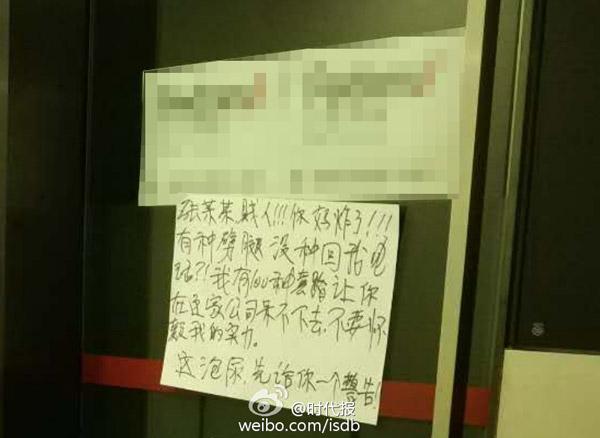 张某某贱人!!!你好炸了!!!
有种劈腿没种回我电
话?!我有100种套路让你
在这家公司呆不下去,不要怀
疑我的实力。
这泡尿,先给你一个警告!
@时代报
weibo.com/isdb